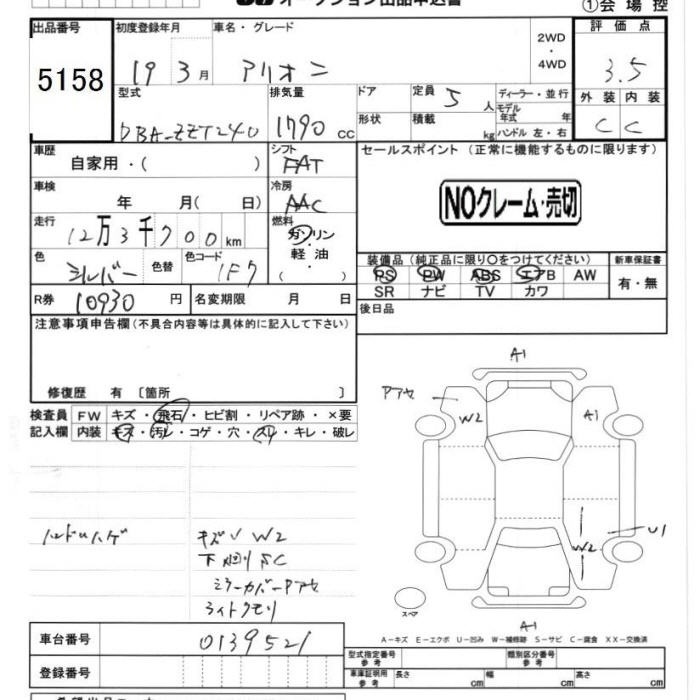 オークション出品申込書
①会場控
出品番号 初度登録年月 車名・グレード 2WD・4WD 評価点
5158 19 3月 アリオン 3.5
型式 排気量 ドア 定員 5人 ディーラー・並行 外装 内装
DBA-ZZT240 1790 cc 形状 積載 kg モデル年式 年 ハンドル 左・右 C C
車歴 シフト セールスポイント (正常に機能するものに限ります)
自家用・( ) FAT
車検 冷房
年 月( 日) AAC NOクレーム・売切
走行 燃料
12万3千700km ガソリン
色 シルバー 色替 色コード 1F7 軽油 ・( )
装備品(純正品に限り○をつけてください) 新車保証書
PS PW ABS エアB AW
SR ナビ TV カワ 有・無
R券 10930円 名変期限 月 日 後日品
注意事項申告欄(不具合内容等は具体的に記入して下さい)
修復歴 有 〔箇所 〕
検査員 FW キズ・飛石・ヒビ割・リペア跡・×要
記入欄 内装 キズ・汚レ・コゲ・穴・スレ・キレ・破レ
A1
アアせ W2 A1
ハンドルハゲ キズV W2
下廻りSC
ミラーカバーアアせ
ライトクモリ
U1
W2
スペア
A1
A-キズ E-エクボ U-凹み W-補修跡 S-サビ C-腐食 XX-交換済
車台番号 0139521
登録番号
型式指定番号 参考 類別区分番号 参考
車庫証明用 参考 長さ cm 幅 cm 高さ cm